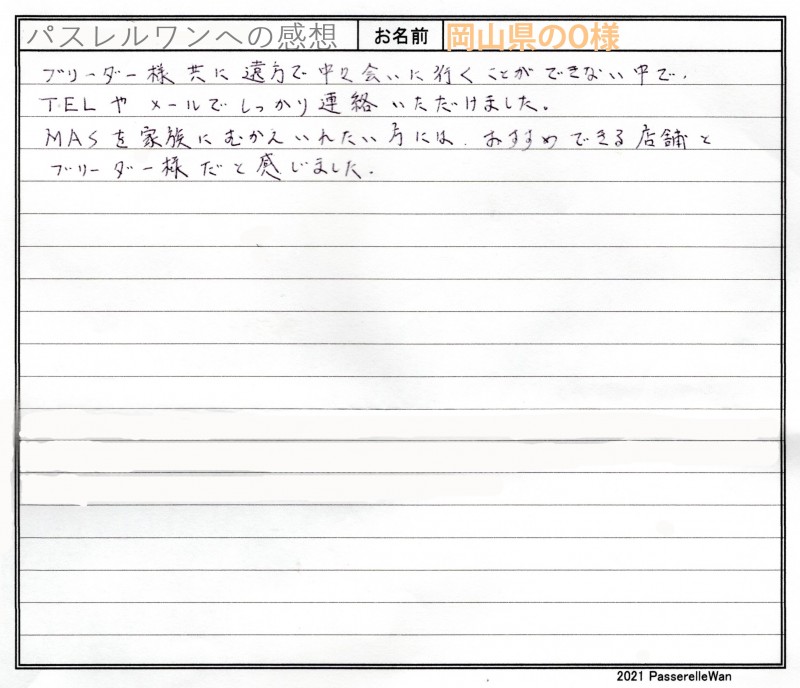 パスレルワンへの感想 お名前 岡山県のO様
ブリーダー様共に遠方で中々会いに行くことができない中で、
TELやメールでしっかり連絡いただけました。
MASを家族にむかえいれたい方には、おすすめできる店舗と
ブリーダー様だと感じました。
2021 PasserelleWan